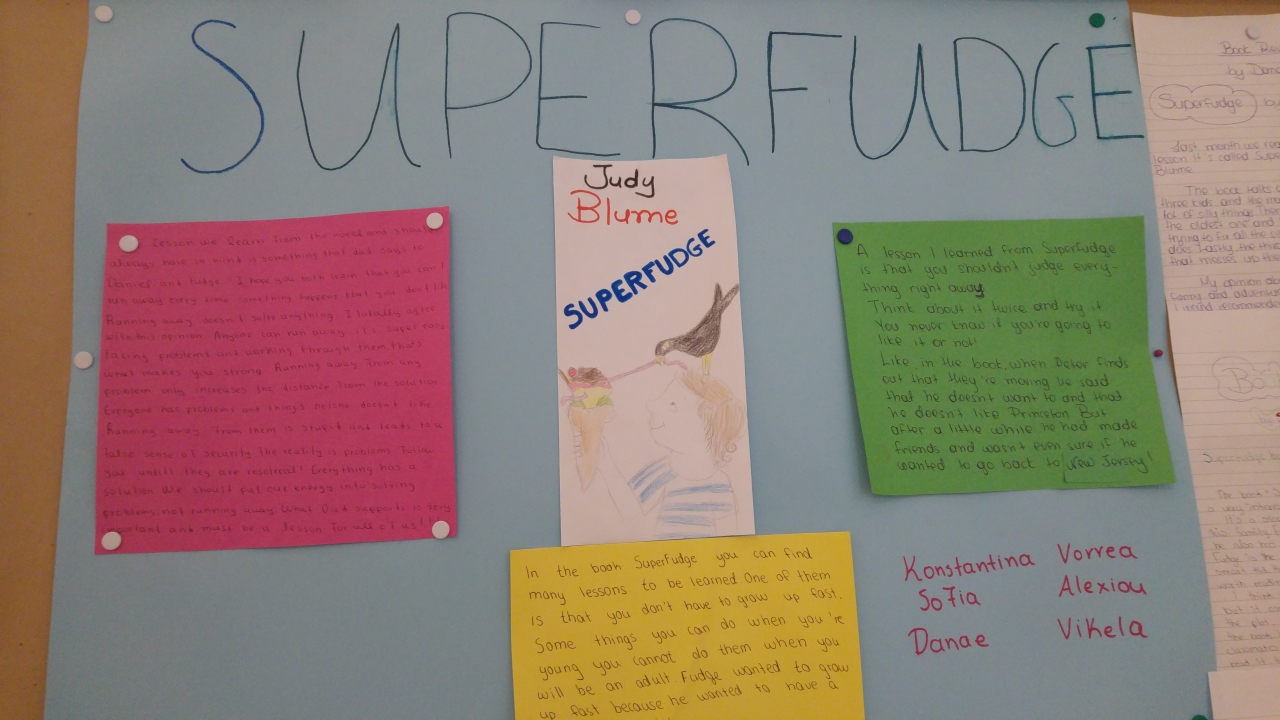 SUPERFUDGE
Judy
Blume
SUPERFUDGE
lesson we learn from the novel and should
always have in mind is something that dad says to
Daniel and Fudge. "I hope you both learn that you can't
run away every time something happens that you don't like
Running away doesn't solve anything. I totally agree
with this opinion. Anyone can run away, it's super easy.
Facing problems and working through them, that's
what makes you strong. Running away from any
problem only increases the distance from the solution
Everyone has problems and things he/she doesn't like.
Running away from them is stupid and leads to a
false sense of security. The reality is problems follow
you until they are resolved! Everything has a
solution. We should put our energy into solving
problems, not running away. What Dad supports is very
important and must be a lesson for all of us!
A lesson I learned from Superfudge
is that you shouldn't judge every-
thing right away.
Think about it twice and try it.
You never know if you're going to
like it or not!
Like, in the book, when Peter finds
out that they're moving he said
that he doesn't want to and that
he doesn't like Princeton. But
after a little while he had made
friends and wasn't even sure if he
wanted to go back to New Jersey!
In the book Superfudge you can find
many lessons to be learned. One of them
is that you don't have to grow up fast.
Some things you can do when you're
young you cannot do them when you
will be an adult. Fudge wanted to grow
up fast because he wanted to have a
Konstantina Vorrea
Sofia Alexiou
Danae Vikela
Book
by Dana
Superfudge by
Last month we read
lesson. It's called Supe
Blume
The book talks
three kids and the
lot of silly things. The
the oldest one and
trying to fix all the
does. Lastly, the thi
that messes up the
My opinion abo
funny and
I would recommend
Superfudge b
The book